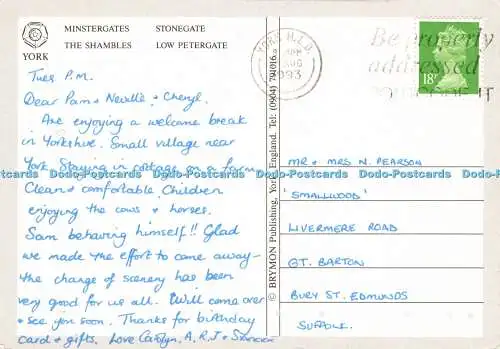 MINSTERGATES STONEGATE
THE SHAMBLES LOW PETERGATE
YORK
Tues P.M.
Dear Pam & Neville & Cheryl.
Are enjoying a welcome break
in Yorkshire. Small village near
York. Staying in cottage on a farm
Clean & comfortable. Children
enjoying the cows & horses.
Sam behaving himself!! Glad
we made the effort to come away-
the change of scenery has been
very good for us all. Will come over
& see you soon. Thanks for birthday
card & gifts. Love Carolyn, A, R, J &
© BRYMON Publishing, York, England. Tel: (0904) 791016
YORK
AUG
Be properly
addressed
18P
MR & MRS N. PEARSON
'SMALLWOOD'
LIVERMERE ROAD
GT. BARTON
BURY ST. EDMUNDS
SUFFOLK.
Dodo-Postcards
Dodo-Postcards
Dodo-Postcards